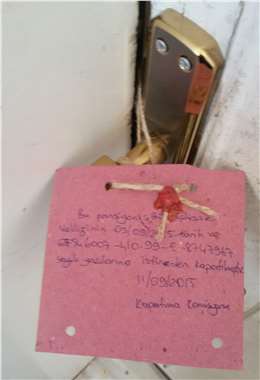 Bu pansiyon
Valiliğinin 03/09/2015 tarih ve
-410.99-E.8747947
sayılı yazılarına istinaden kapatılmıştır
11/09/2015
Kapatma Komisyonu